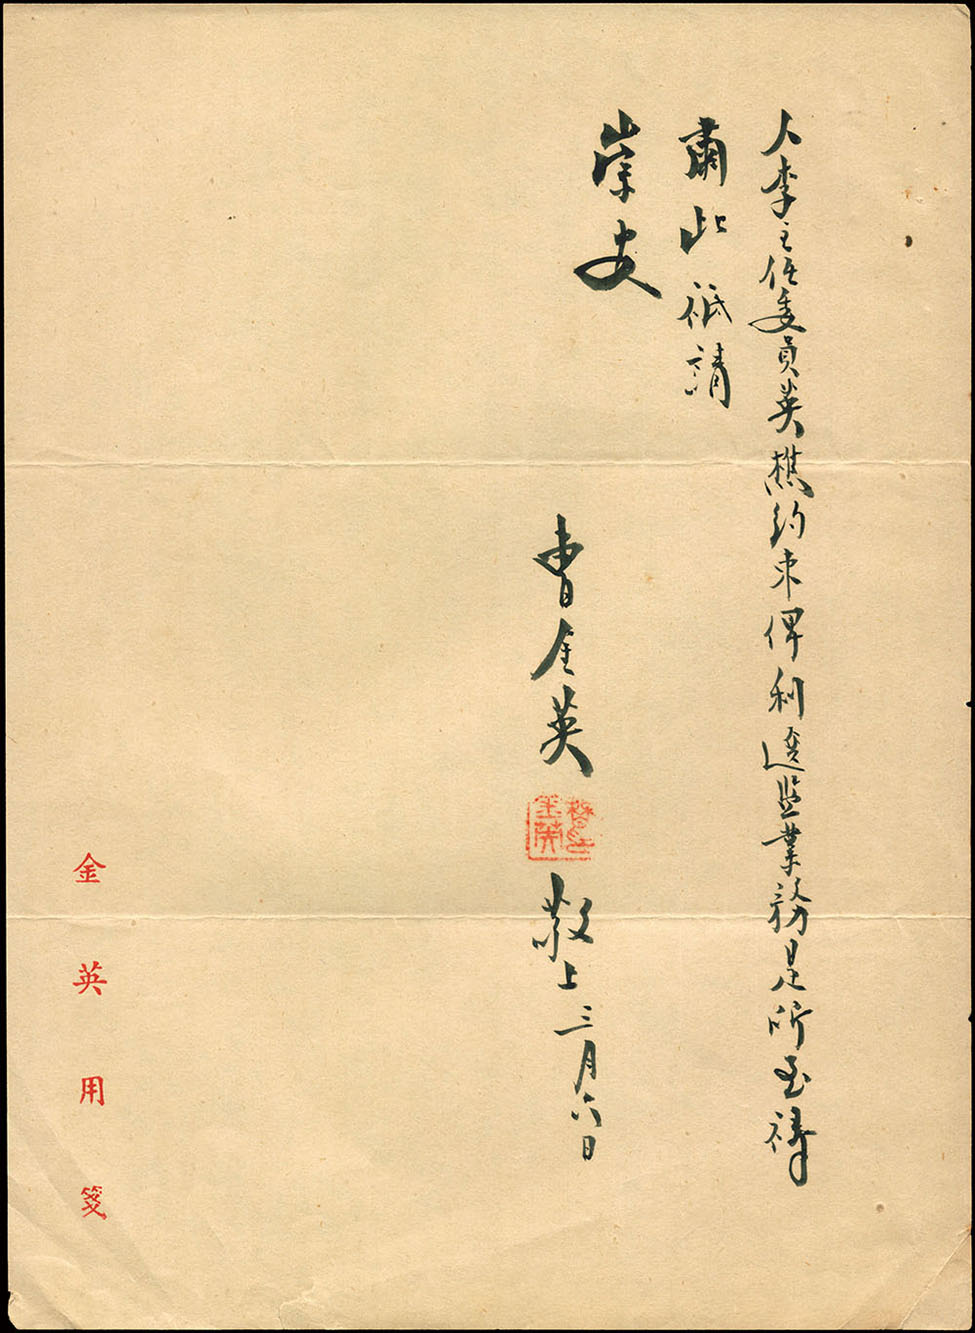 人李主任委員英樵約束俾利選監業務是所至禱
肅此祇請
崇安
曹金英敬上三月六日
金英用箋